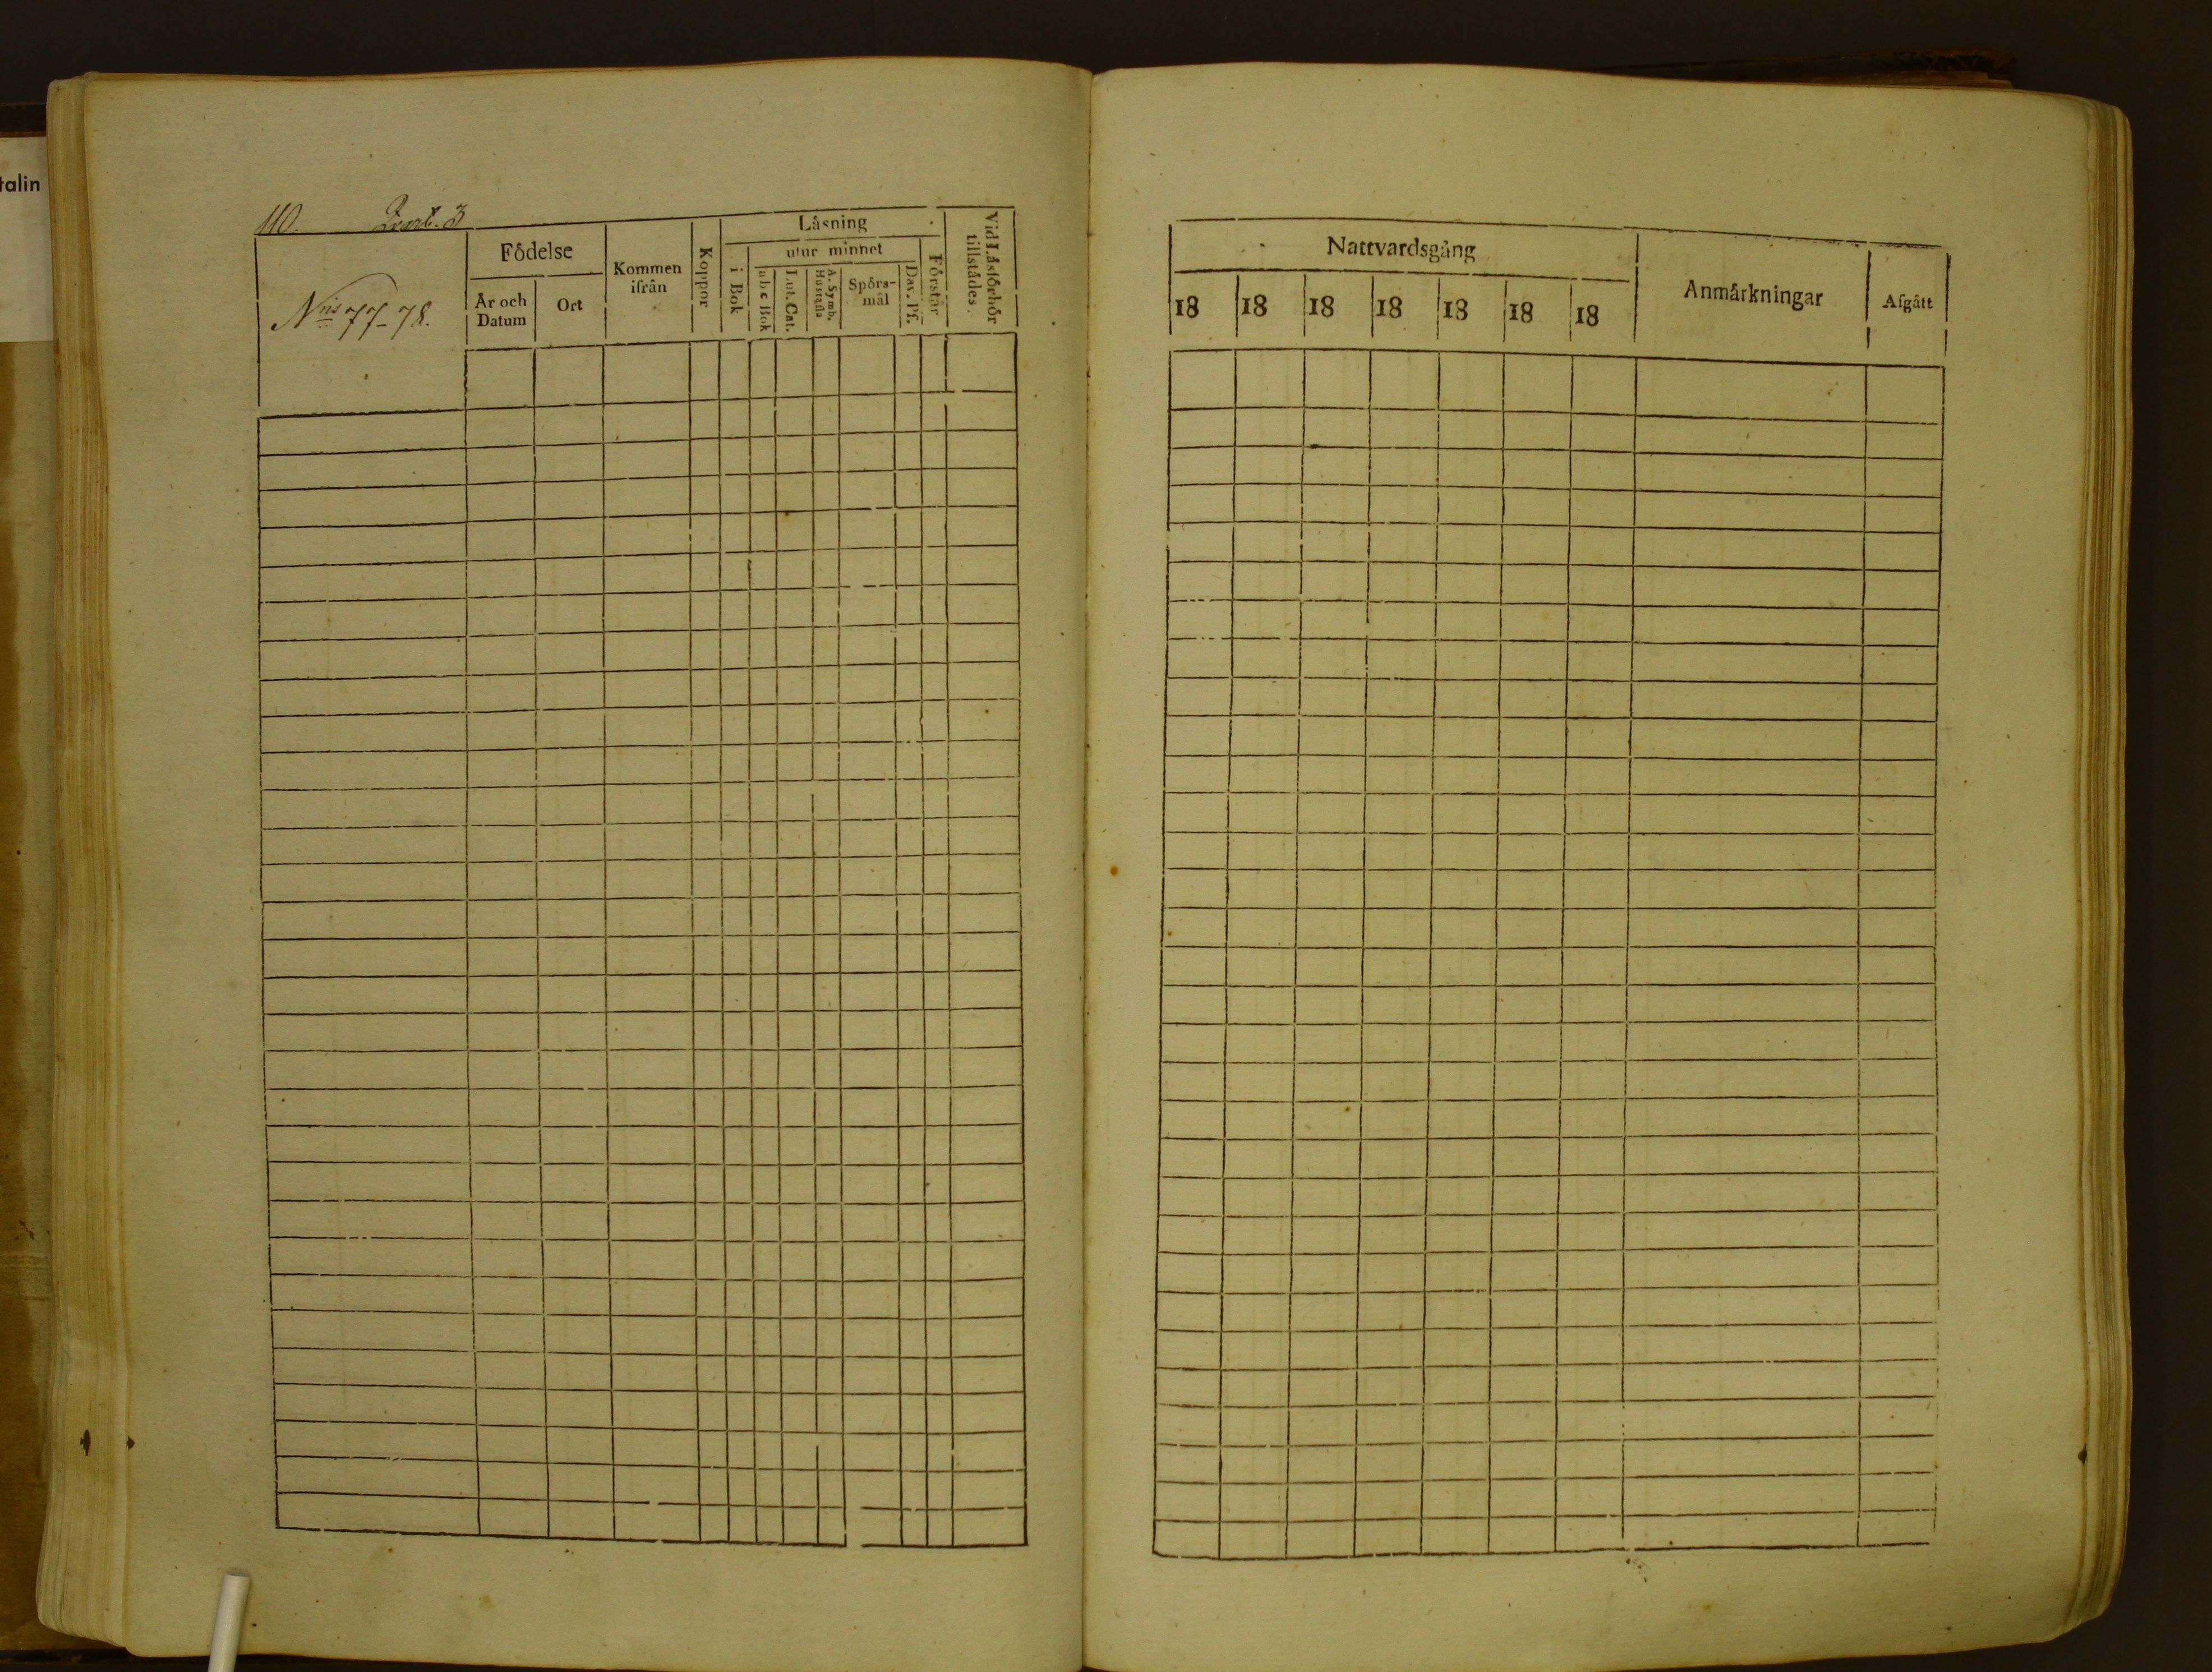 talin
110. Qvart. 3
N:is 77-78.
Födelse
År och Datum
Ort
Kommen ifrån
Koppor
Låsning
i Bok
utur minnet
a b c Bok
Lut. Cat.
A. Symb. Hustafla
Spörs-mål
Dav. Pf.
Förstår
Vid Låsförhör tillstådes
Nattvardsgång
18 18 18 18 18 18 18
Anmärkningar
Afgått